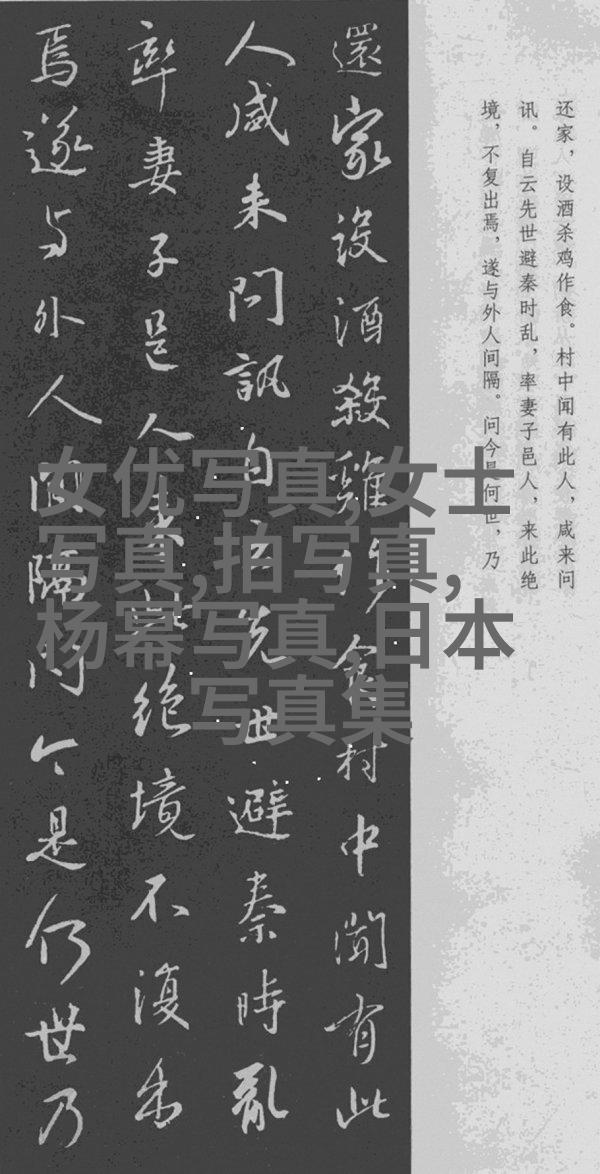 還家設酒殺雞作食村中聞有此
人咸来問訊自云先世避秦時亂
率妻子邑人来此絶境不復出
焉遂与外人间隔问今是何世乃
还家，设酒杀鸡作食。村中闻有此人，咸来问
讯。自云先世避秦时乱，率妻子邑人，来此绝
境，不复出焉，遂与外人间隔。问今是何世，乃
女优写真,女士
写真,拍写真,
杨幂写真,日本
写真集